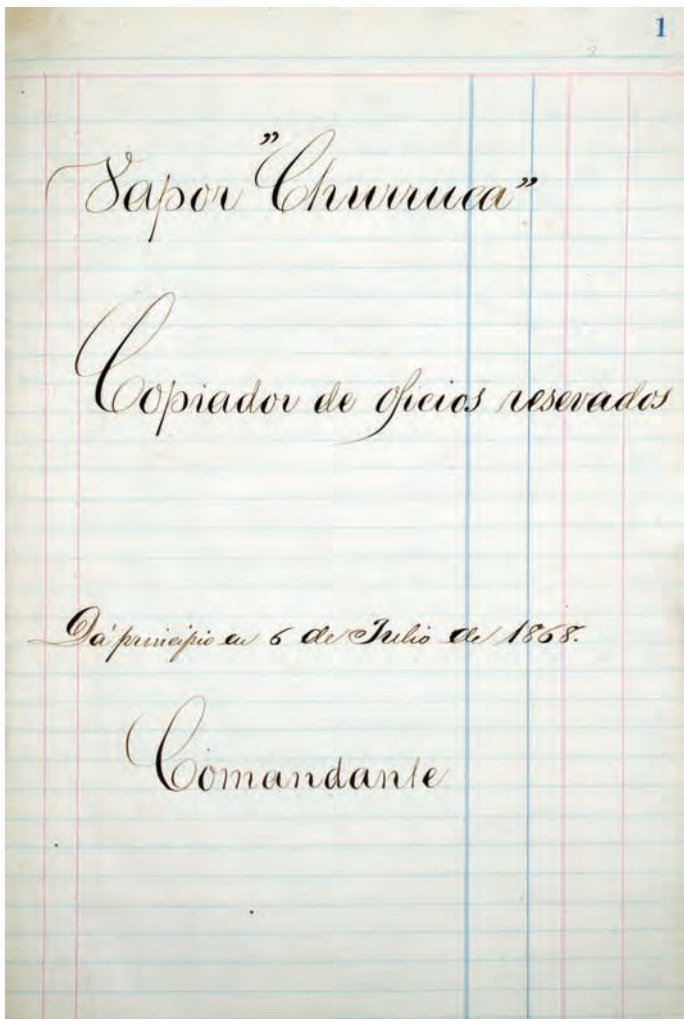 1
Vapor "Churruca"
Copiador de oficios resevados
Dá principio en 6 de Julio de 1868.
Comandante